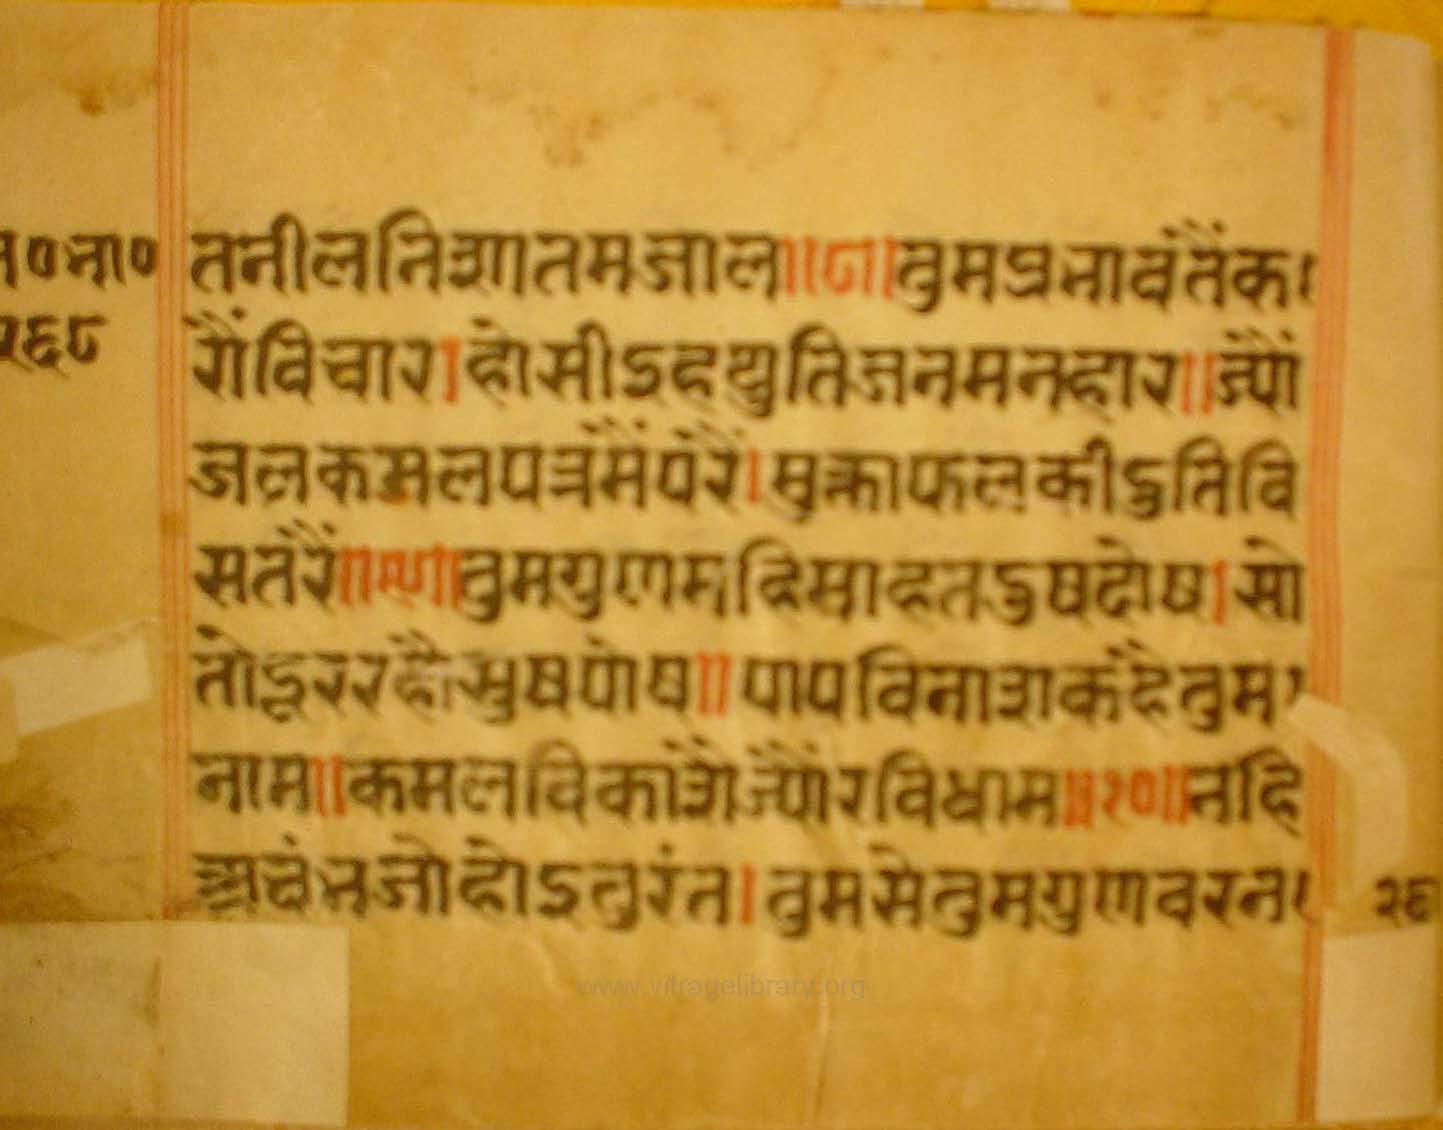 न०ना०
२६८
तनीलनिशातमजाल॥७॥तुमप्रभावतैंक
रौंविचार।होसीऽहथुतिजनमनहार॥ज्यौं
जलकमलपत्रमैंपरै।मुक्ताफलकीदुतिवि
सतरैं॥८॥तुमगुणमहिमाहतदुषदोष।सो
तोदूररहौसुषपोष॥पापविनाशकहैतुम
नाम॥कमलविकाशैज्यौंरविधाम॥१०॥नहि
अचंभजोहोऽतुरंत।तुमसेतुमगुणवरन
२६
www.vitragelibrary.org